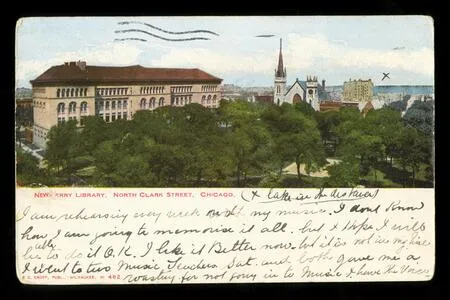 x
NEWBERRY LIBRARY, NORTH CLARK STREET, CHICAGO.
(x Lake in the distance)
I am rehearsing every week on my music. I dont know
how I am going to memorise it all. but I hope I will
be able to do it O.K. I like it Better now. but it's not
I went to two Music Teachers Sat. and both gave me a
roasting for not going in to Music. I have the Voice
E. C. KROPP, PUBL., MILWAUKEE, NO 482